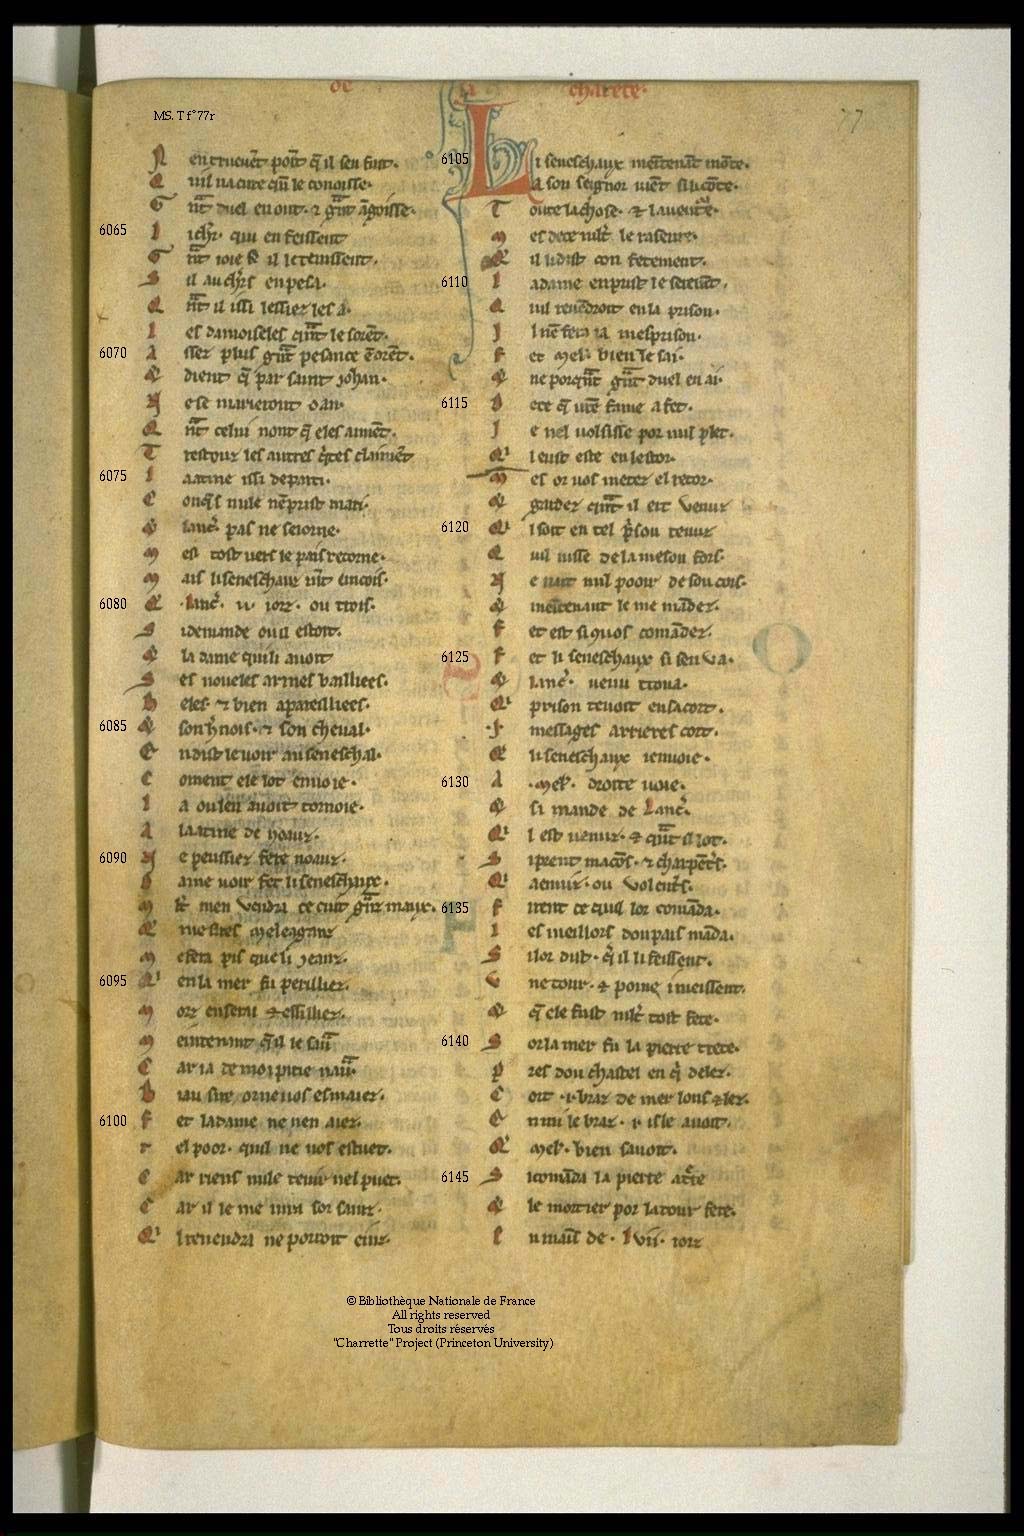 de la charete.
MS. T f°77r
77
N en truevẽt poĩt q̃ il sen fuit.
Q uil na cure qũ le conoisse.
G nt duel en ont. ⁊ gnt ãgoisse.
6065 l ichr̃. qui en feissent
G nt ioie se il le tenissent.
S il au chr̃s en pesa.
Q nt il issi lessiez les a.
L es damoiseles qnt le sorẽt.
6070 A ssez plus gnt pesance ẽ orẽt.
E dient q̃ par saint Johan.
N e se marieront oan.
Q nt celui nont q̃ eles aimẽt.
T restouz les autres qites claimẽt
6075 L aatine issi departi.
C onq̃s nule nẽ prist mari.
E lanc̃. pas ne seiorne.
M es tost vers le pais retorne.
M ais li seneschaux vĩt eincois.
6080 Q .lanc̃. ii. iorz. ou trois.
S i demande ou il estoit.
E la dame qui li auoit
S es noueles armes bailliees.
B eles. ⁊ bien apareilliees.
6085 E son h̃nois. ⁊ son cheual.
E n dist le voir au seneschal.
C oment ele lot enuoie.
L a ou len auoit tornoie.
A laatine de noauz.
6090 N e peussiez fere noauz.
D ame voir fet li seneschaux.
M lt men vendra ce cuit gnz maux.
Q mes sires meleaganz
M e fera pis que li jeanz.
6095 Q en la mer fu perilliez.
M orz en serai ⁊ essilliez.
M eintenant q̃ il le saura
C ar ia de moi pitie naura.
B iau sire or ne uos esmaiez.
6100 F et la dame ne nen aiez.
T el poor. quil ne uos estuet.
C ar riens nule tenir nel puet.
C ar il le me iura sor sainz.
Q l reuendra ne porroit einz.
6105 L i seneschaux meĩtenãt mõte.
A son seignor vient si li cõte.
T oute la chose. ⁊ lauenture.
M es de ce mlt le rasseure.
Q il li dist con fetement.
6110 L a dame en prist le serement.
Q uil reuẽdroit en la prison.
J l nẽ fera ia mesprison.
F et Mel. bien le sai.
E ne porqnt gnt duel en ai.
6115 D ece q̃ vr̃e fame a fet.
J e nel uolsisse por nul plet.
Q l eust este en lestor.
M es or vos metez el retor.
E gardez qnt il ert venuz
6120 Q l soit en tel p̃son tenuz
Q uil nisse de la meson fors.
N e nait nul pooir de son cors.
E meĩtenant le me mãdez.
F et est si quos comãdez.
6125 F et li seneschaux si sen va.
E lanc̃. venu troua.
Q prison tenoit en sa cort.
.I. messages arrieres cort.
Q li seneschaux ienuoie.
6130 A .Mel. droite uoie.
E si mande de Lanc̃.
Q l est venuz. ⁊ qnt si lot.
S i prent macõs. ⁊ charpẽt's.
Q a enuiz. ou volent's.
6135 F irent ce quil lor comãda.
L es meillors dou pais mãda.
S i lor dist. q̃ il li feissent.
V ne tour. ⁊ poine i meissent.
E q̃ ele fust mlt tost fete.
6140 S or la mer fu la pierre trete.
P res dou chastel en q̃ delez.
C ort .i. braz de mer lons ⁊ lez.
E n mi le braz .i. isle auoit.
Q Mel. bien sauoit.
6145 S i comãda la pierre at're
E le mortier por la tour fere.
E n mains de .lvii. iorz
© Bibliothèque Nationale de France
All rights reserved
Tous droits réservés
"Charrette" Project (Princeton University)